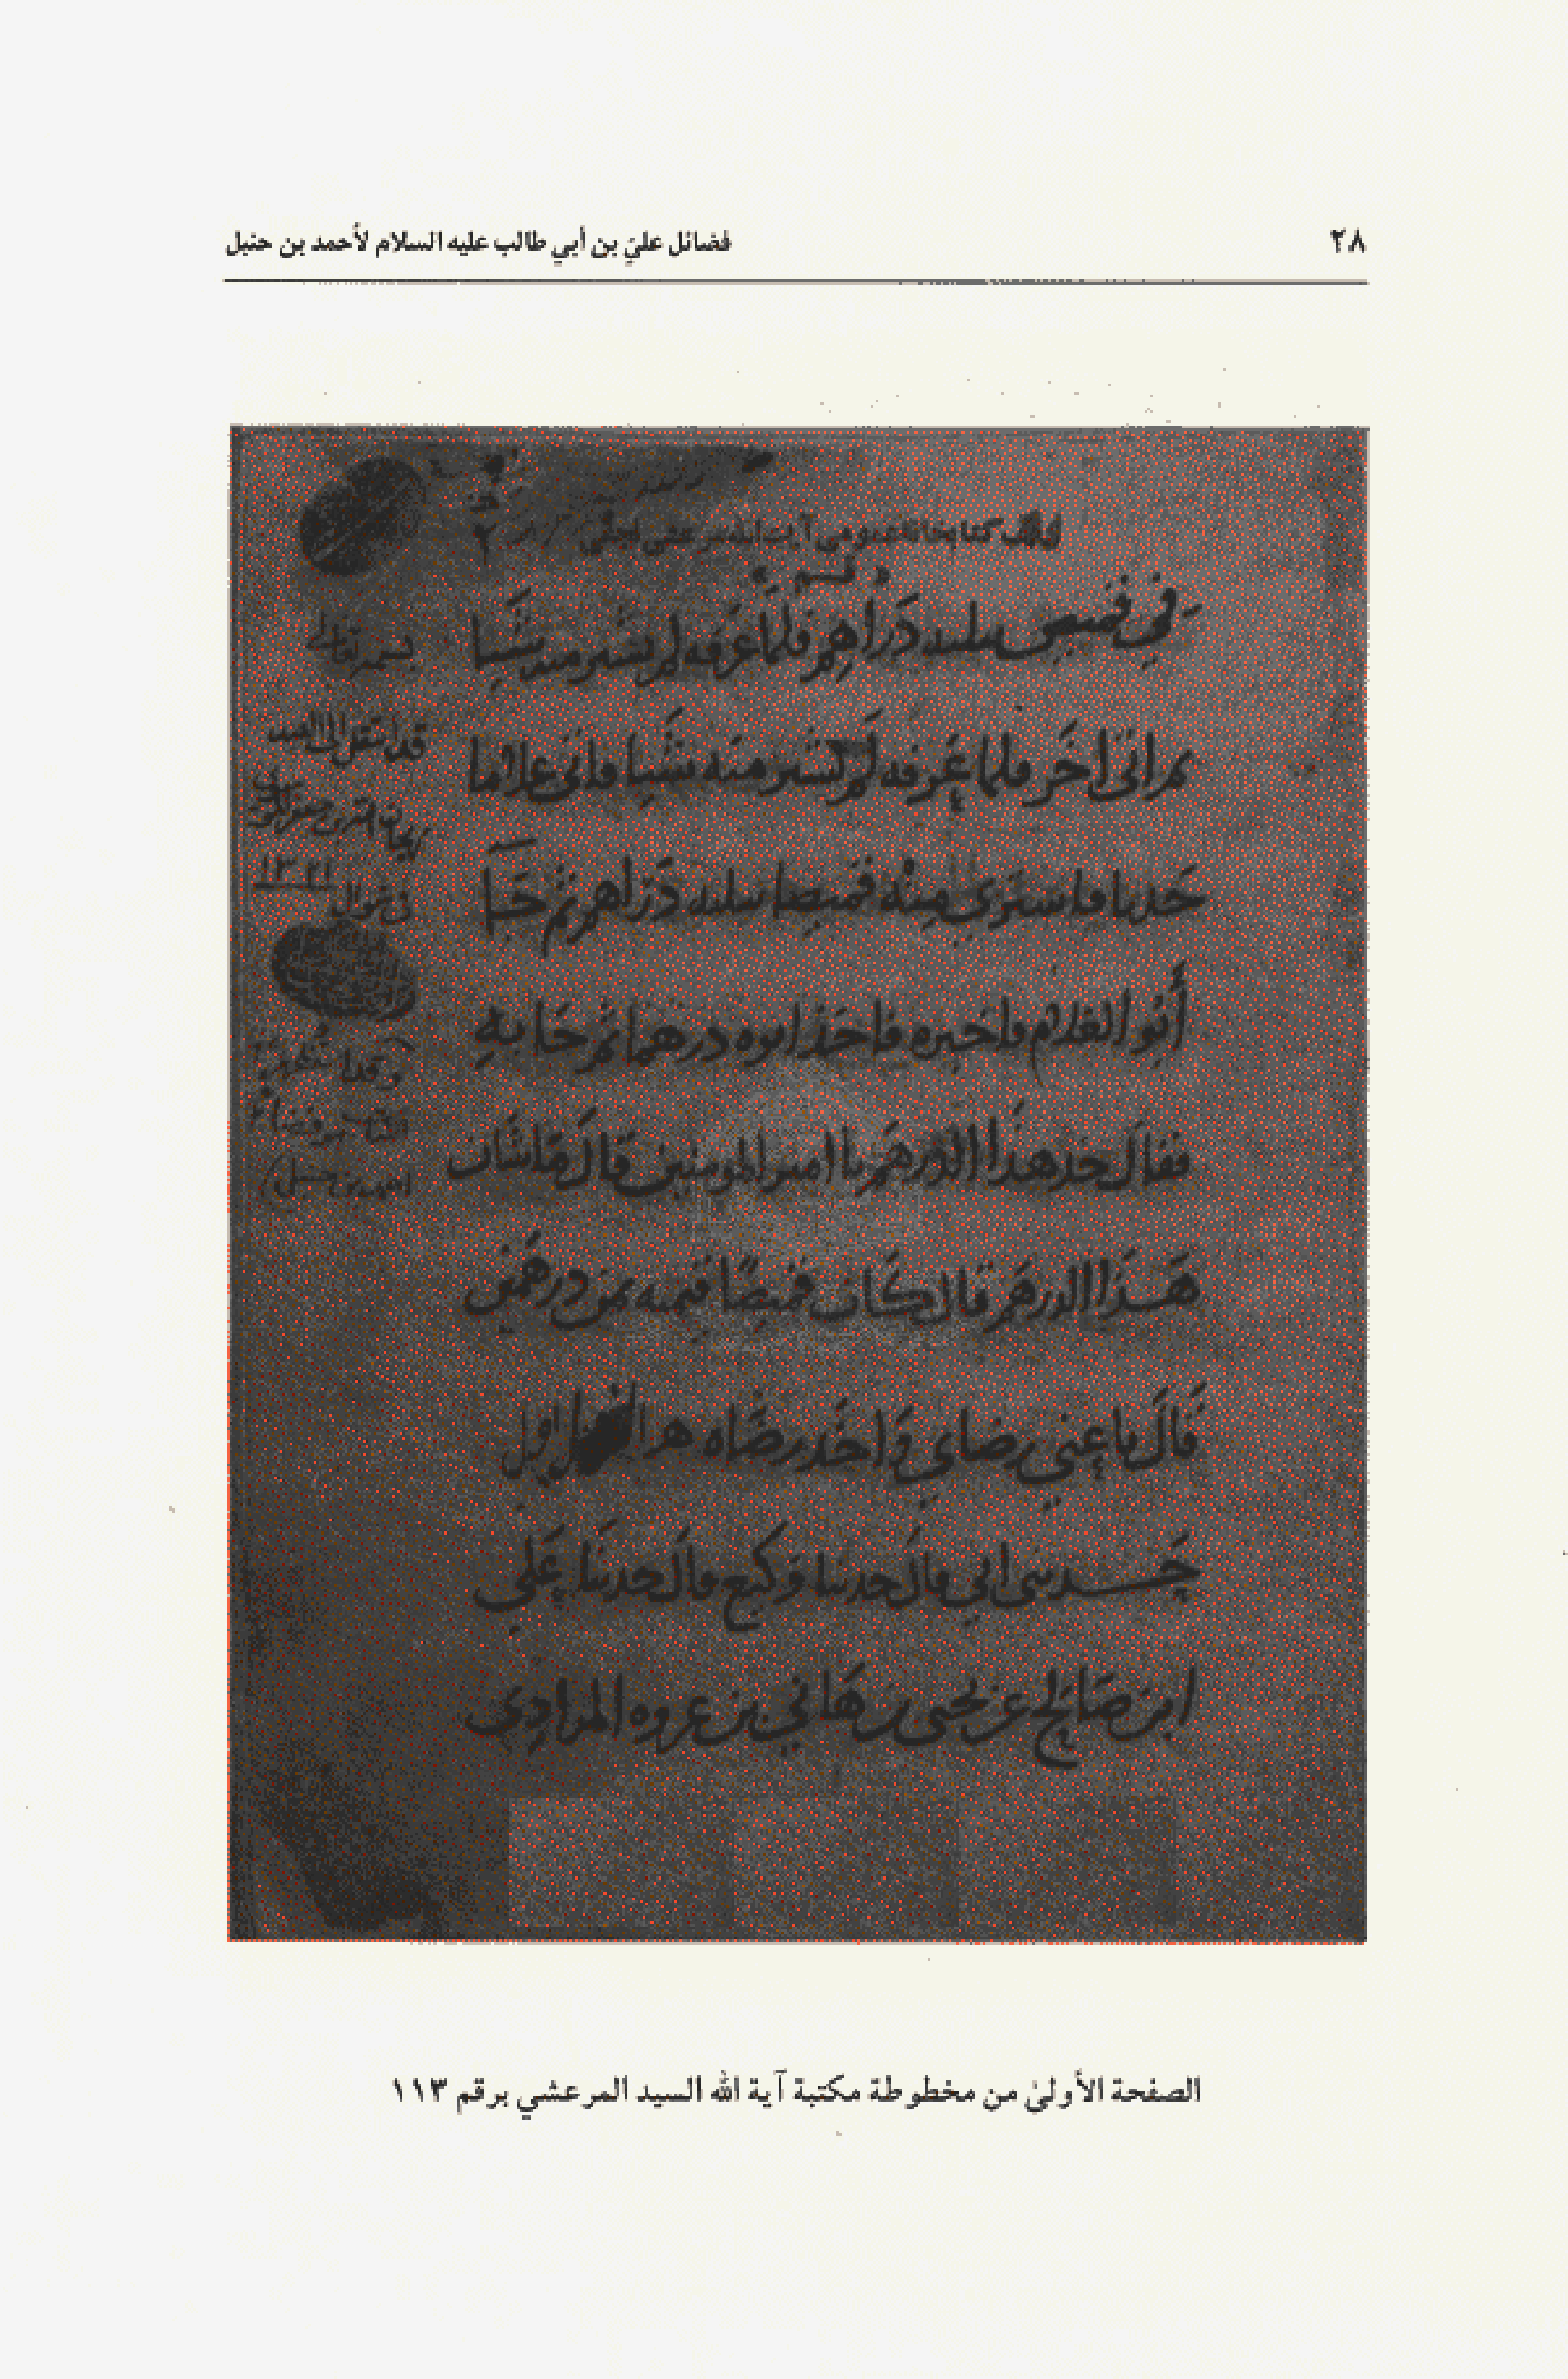 ٢٨
فضائل عليّ بن أبي طالب عليه السلام لأحمد بن حنبل
كتابخانه عمومى آيت الله مرعشى نجفى
قم
في قميص بثلثه دَرَاهِم فلمّا عَرَفه لم يشتر منه شيا
ثم اتى اخَر فلما عَرفه لَم يشتر منه شيا فاتى غلاما
حَدثا فاشترى مِنْه قميصا بثلثه دَرَاهم ثم جَآ
أَبُو الغلام فاخبره فاخذ ابوه درهما ثم جَا به
فقالَ خذ هَذا الدرهم يا امير المومنين قالَ مَا شَان
هَذا الدرهَم قال كَان قميصًا قيمه ثمن درهمين
قَالَ بَاعني رضاي وَاخَذ رضَاه
حَدثنى ابي قالَ حدثنا وَكيع قالَ حدثنا عَلي
ابن صَالح عن يحيى بن هَاني بن عروه المرادي
بسمه تعالى
قد انتقل الى العبد
فى شوال ١٣٢١
احمد بن حنبل)
الصفحة الأولىٰ من مخطوطة مكتبة آية الله السيد المرعشي برقم ١١٣